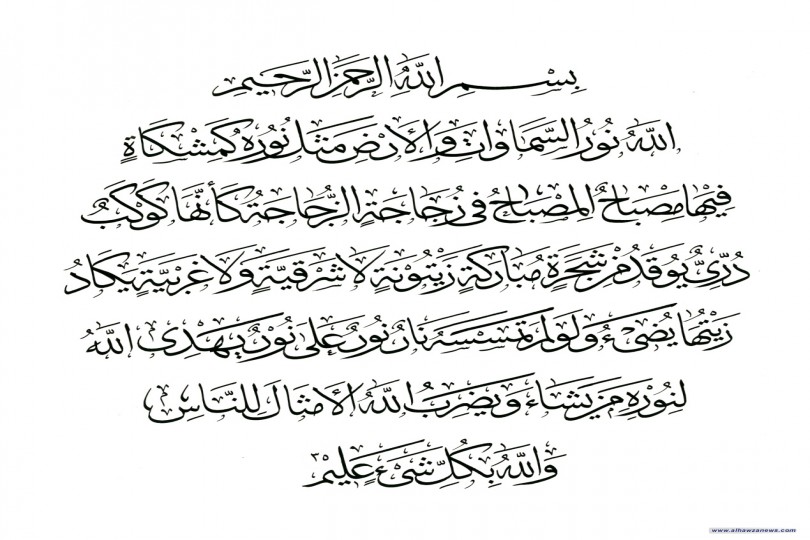 بِسْمِ اللَّهِ الرَّحْمَنِ الرَّحِيمِ
اللَّهُ نُورُ السَّمَاوَاتِ وَالْأَرْضِ مَثَلُ نُورِهِ كَمِشْكَاةٍ
فِيهَا مِصْبَاحٌ الْمِصْبَاحُ فِي زُجَاجَةٍ الزُّجَاجَةُ كَأَنَّهَا كَوْكَبٌ
دُرِّيٌّ يُوقَدُ مِنْ شَجَرَةٍ مُبَارَكَةٍ زَيْتُونَةٍ لَا شَرْقِيَّةٍ وَلَا غَرْبِيَّةٍ يَكَادُ
زَيْتُهَا يُضِيءُ وَلَوْ لَمْ تَمْسَسْهُ نَارٌ نُورٌ عَلَى نُورٍ يَهْدِي اللَّهُ
لِنُورِهِ مَنْ يَشَاءُ وَيَضْرِبُ اللَّهُ الْأَمْثَالَ لِلنَّاسِ
وَاللَّهُ بِكُلِّ شَيْءٍ عَلِيمٌ
www.alhawzanews.com